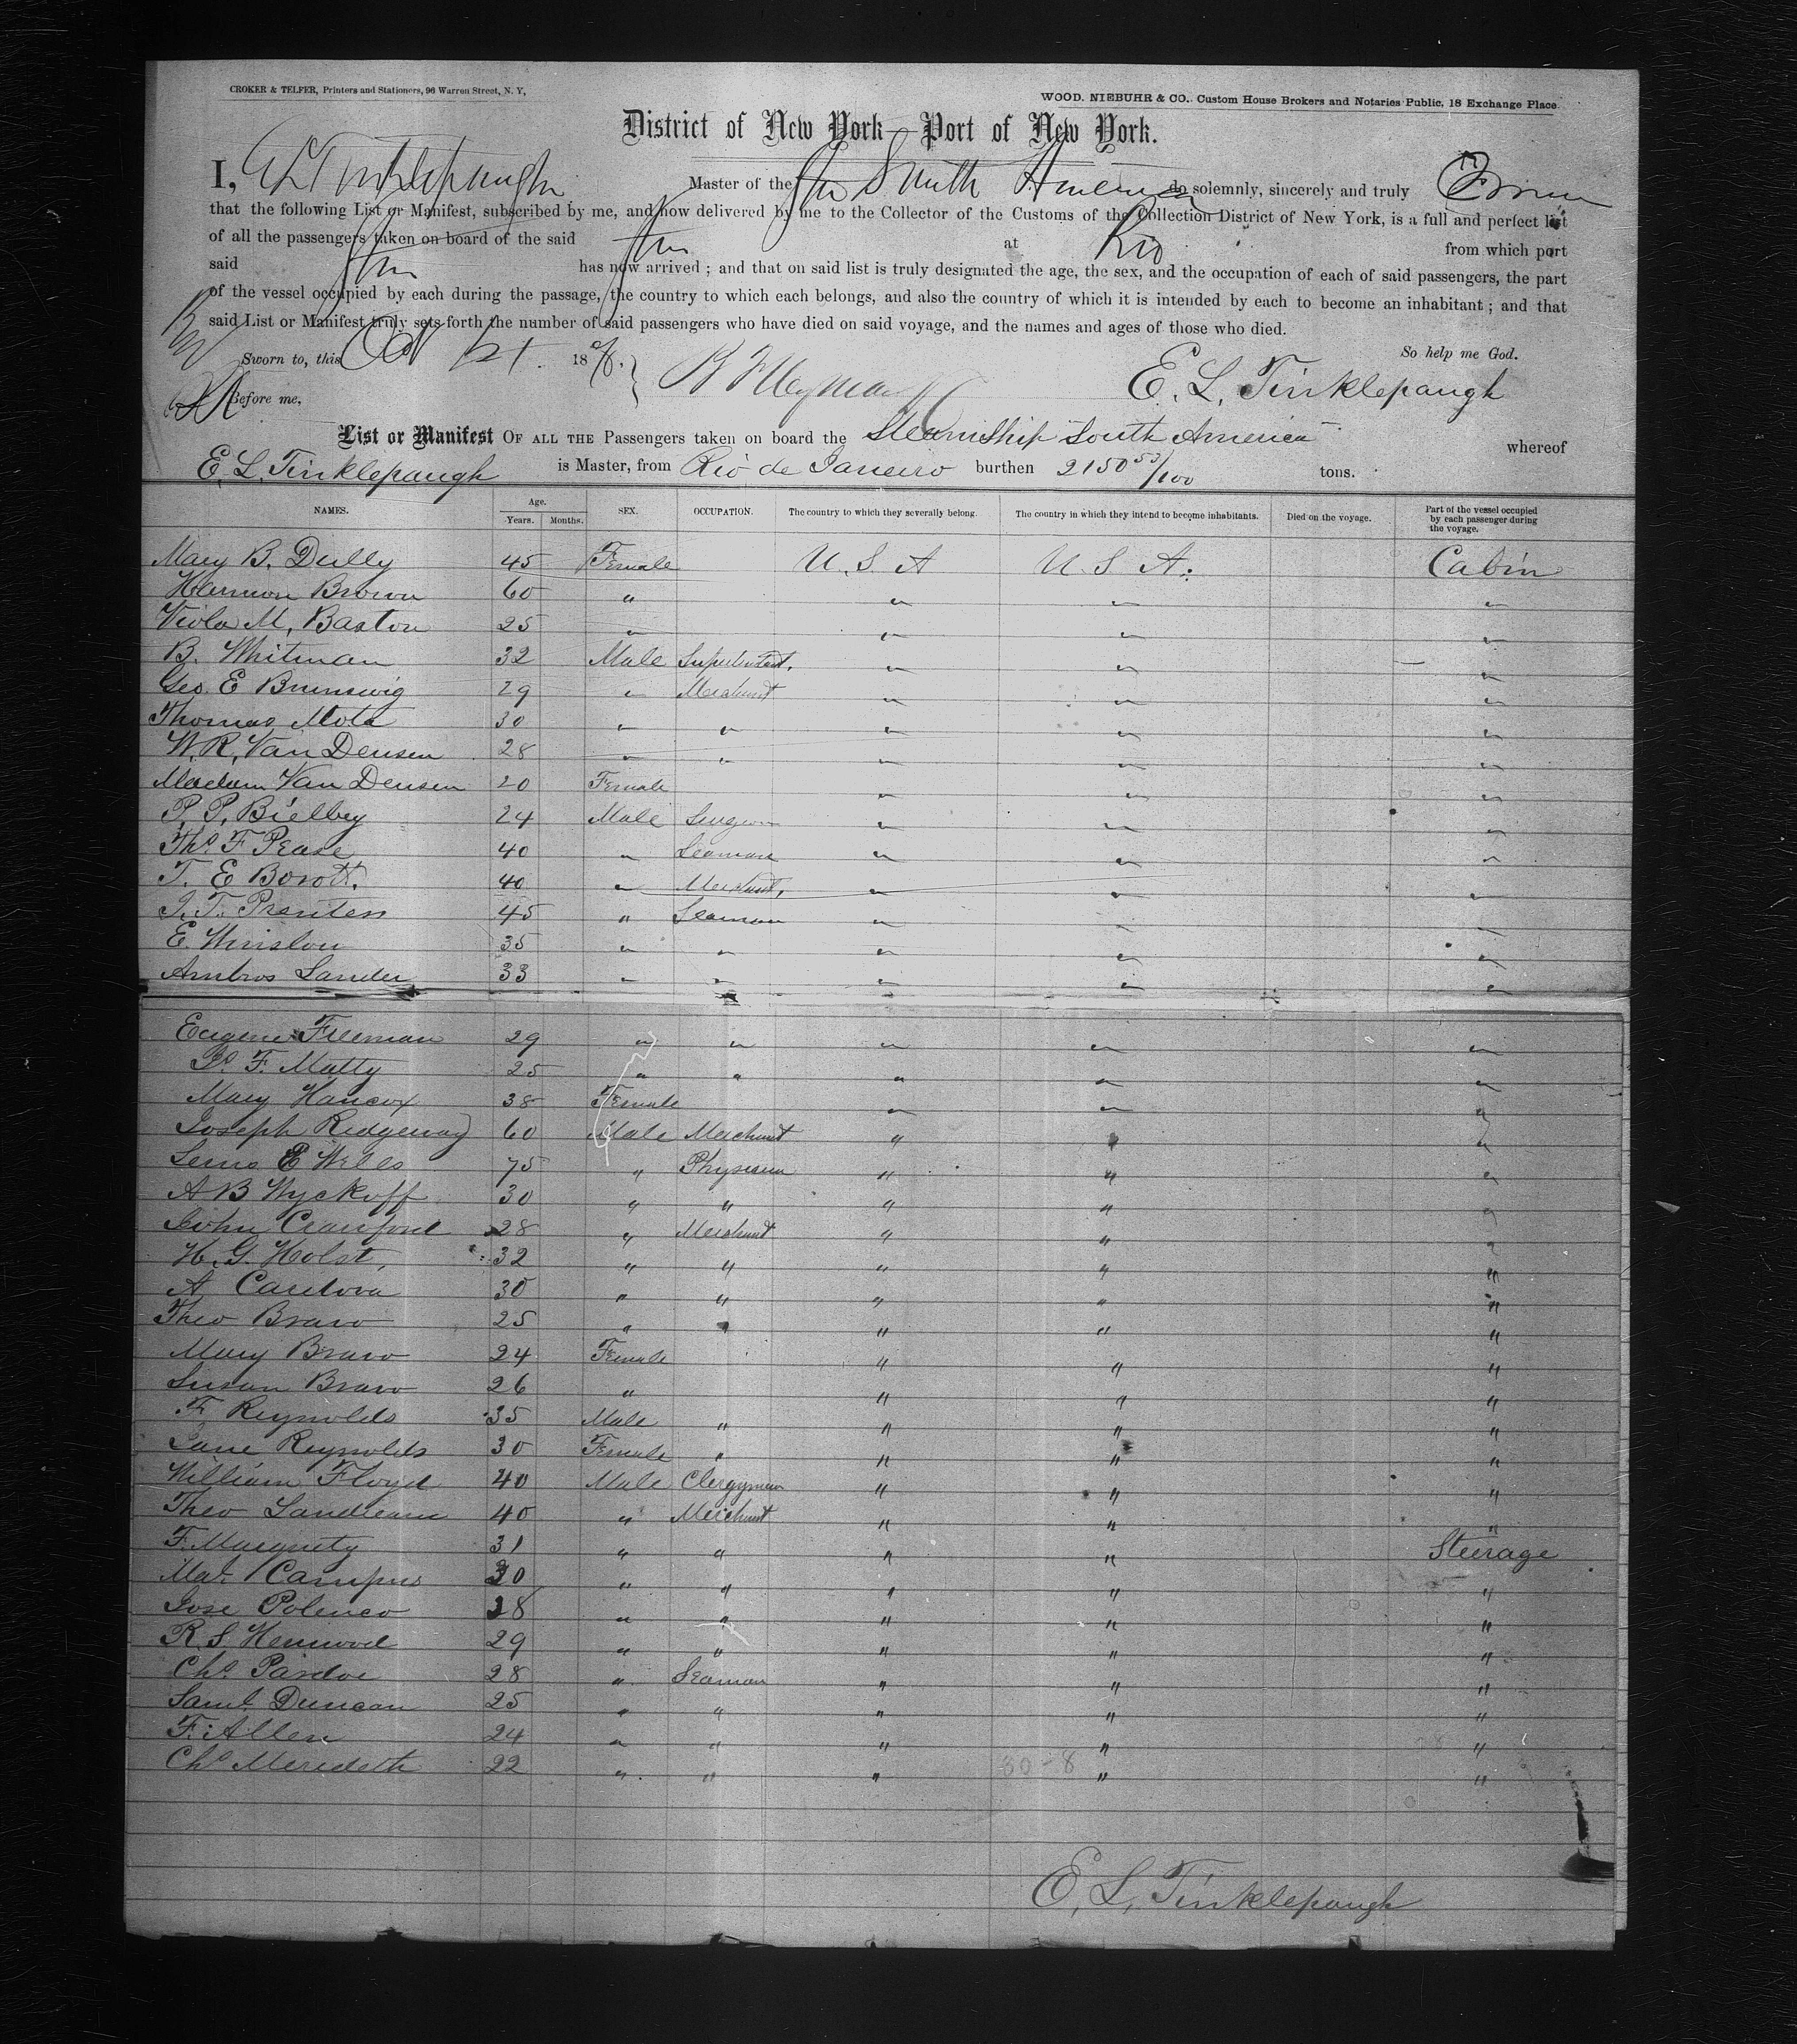 CROKER & TELFER, Printers and Stationers, 96 Warren Street, N. Y,
WOOD, NIEBUHR & CO., Custom House Brokers and Notaries Public, 18 Exchange Place
District of New York—Port of New York.
I, E L Tinklepaugh Master of the Str South America do solemnly, sincerely and truly
that the following List or Manifest, subscribed by me, and now delivered by me to the Collector of the Customs of the Collection District of New York, is a full and perfect list
of all the passengers taken on board of the said Str at Rio from which port
said Str has now arrived ; and that on said list is truly designated the age, the sex, and the occupation of each of said passengers, the part
of the vessel occupied by each during the passage, the country to which each belongs, and also the country of which it is intended by each to become an inhabitant ; and that
said List or Manifest truly sets forth the number of said passengers who have died on said voyage, and the names and ages of those who died.
Sworn to, this Oct 21 1878. So help me God.
Before me, E. L. Tinklepaugh
List or Manifest OF ALL THE Passengers taken on board the SteamShip South America whereof
E. L. Tinklepaugh is Master, from Rio de Janeiro burthen 2150 53/100 tons.
NAMES. Age. Years. Months. SEX. OCCUPATION. The country to which they severally belong. The country in which they intend to become inhabitants. Died on the voyage. Part of the vessel occupied by each passenger during the voyage.
Mary B. Dully 45 Female U. S. A U. S. A. Cabin
Harmon Brown 60 " " " "
Viola M, Baston 25 " " " "
B. Whitman 32 Male " " "
Geo. E Brunswig 29 " Merchant " " "
Thomas Mota 30 " " " " "
W. R. Van Deusen 28 " " " " "
Madam Van Deusen 20 Female " " "
P. P. Bielby 24 Male Surgeon " " "
Thos. F Pease 40 " Seaman " " "
T. E Borott. 40 " Merchant, " " "
J. T. Prenten 45 " Seaman " " "
E. Winslow 35 " " " " "
Ambros Lander 33 " " " " "
Eugene Freeman 29 " " " " "
F. Matty 25 " " " " "
Mary Hancox 38 Female " " "
Joseph Ridgeway 60 Male Merchant " " "
Lewis E Wells 75 " Physician " " "
A B Wyckoff 30 " " " " "
John Crawford 28 " Merchant " " "
H. G. Holst, 32 " " " " "
A Cardova 30 " " " " "
Theo Bravo 25 " " " " "
Mary Bravo 24 Female " " "
Susan Bravo 26 " " " "
F. Reynolds 35 Male " " " "
Jane Reynolds 30 Female " " " "
William Floyd 40 Male Clergyman " " "
Theo 40 " Merchant " " "
F. Margrity 31 " " " " Steirage
Mat. Campus 30 " " " " "
Jose Polenco 18 " " " " "
R. S. Henwood 29 " " " " "
Chs. Pardoe 28 " Seaman " " "
Saml. Duncan 25 " " " " "
F. Allen 24 " " " " "
Chs Meredeth 22 " " " " "
30-8
E. L. Tinklepaugh